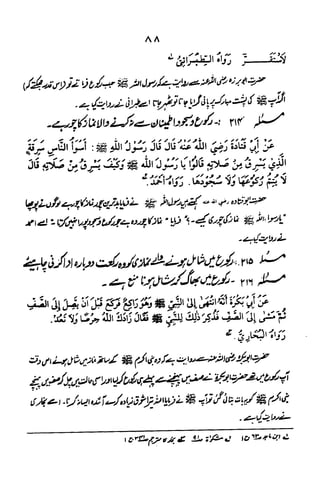 ۸۸
لَاسْتَقَرَّ رَوَاهُ الطَّبَرَانِیُّ
حضرت ابو برزہ رضی اللہ عنہ سے روایت ہے کہ رسول اللہ ﷺ جب رکوع فرماتے تو (اس قدر جھکتے کہ)
اگر آپ ﷺ کی پشت مبارک پر پانی گرایا جاتا تو ٹھہر جاتا اسے طبرانی نے روایت کیا ہے۔
مسئلہ ۲۱۴ :۔ رکوع و سجود اطمینان سے نہ کرنے والا نماز کا چور ہے۔
عَنْ أَبِي قَتَادَةَ رَضِيَ اللهُ عَنْهُ قَالَ قَالَ رَسُولُ اللهِ ﷺ: أَسْوَأُ النَّاسِ سَرِقَةً
الَّذِي يَسْرِقُ مِنْ صَلَاتِهِ قَالُوا يَا رَسُولَ اللهِ ﷺ وَكَيْفَ يَسْرِقُ مِنْ صَلَاتِهِ قَالَ
لَا يُتِمُّ رُكُوعَهَا وَلَا سُجُودَهَا. رَوَاهُ أَحْمَدُ.
رضی اللہ عنہ کہتے ہیں رسول اللہ ﷺ نے فرمایا بدترین چور نماز کا چور ہے لوگوں نے پوچھا
"یا رسول اللہ ﷺ نماز کی چوری کیسے۔؟ فرمایا " نماز کا چور وہ ہے جو رکوع و سجود پورا نہیں کرتا۔ اسے احمد
نے روایت کیا ہے۔
مسئلہ ۲۱۵:۔ رکوع میں شامل ہونے والے نمازی کو وہ رکعت دوبارہ ادا کرنی چاہیئے
مسئلہ ۲۱۶ :۔ رکوع میں بھاگ کر شامل ہونا منع ہے۔
عَنْ أَبِي بَكْرَةَ أَنَّهُ انْتَهَى إِلَى النَّبِيِّ ﷺ وَهُوَ رَاكِعٌ فَرَكَعَ قَبْلَ أَنْ يَصِلَ إِلَى الصَّفِّ
ثُمَّ مَشَى إِلَى الصَّفِّ فَذُكِرَ ذَلِكَ لِلنَّبِيِّ ﷺ فَقَالَ زَادَكَ اللهُ حِرْصًا وَلَا تَعُدْ.
رَوَاهُ الْبُخَارِيُّ
حضرت ابو بکرہ رضی اللہ عنہ سے روایت ہے کہ وہ نبی اکرم ﷺ کے ساتھ نماز میں شامل ہوئے اس وقت
آپ رکوع میں تھے حضرت ابو بکرہ نے صف میں پہنچنے سے پہلے ہی رکوع کر لیا اور اسی حالت میں چل کر صف میں پہنچے
نبی اکرم ﷺ کو یہ بات بتائی گئی تو آپ ﷺ نے فرمایا اللہ تیرا شوق زیادہ کرے آئندہ ایسا نہ کرنا۔ اسے بخاری
نے روایت کیا ہے۔